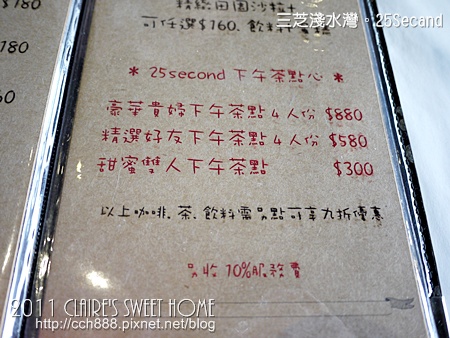 三芝淺水灣。25Secand
$180
可任選$160. 飲料
* 25second 下午茶點心 *
豪華貴婦下午茶點 4 人份 $880
精選好友下午茶點 4 人份 $580
甜蜜雙人下午茶點 $300
60
以上咖啡. 茶. 飲料需另點可享九折優惠
另收 10%服務費
2011 CLAIRE'S SWEET HOME
http://cch888.pixnet.net/blog